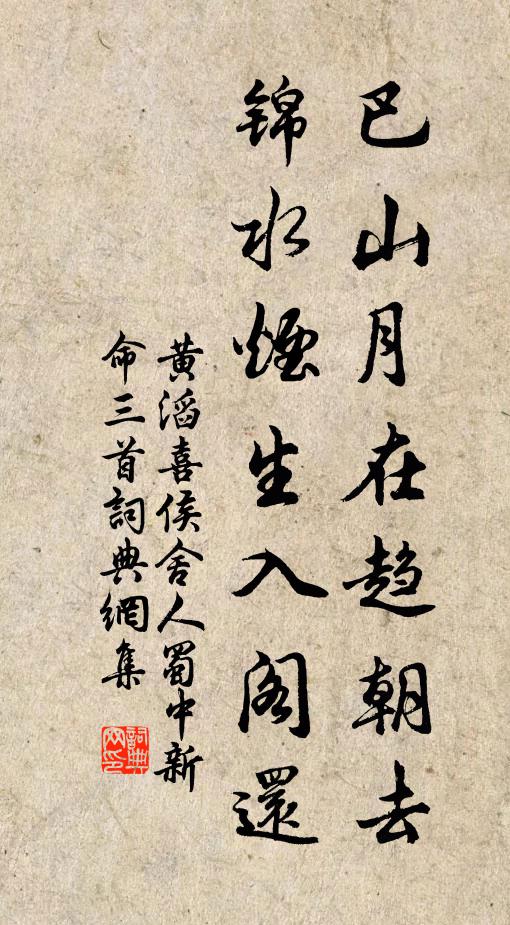 巴山月在趋朝去
锦水煙生入阁還
黄滔喜侯舍人蜀中新
命三首詞典網集
詞典网印